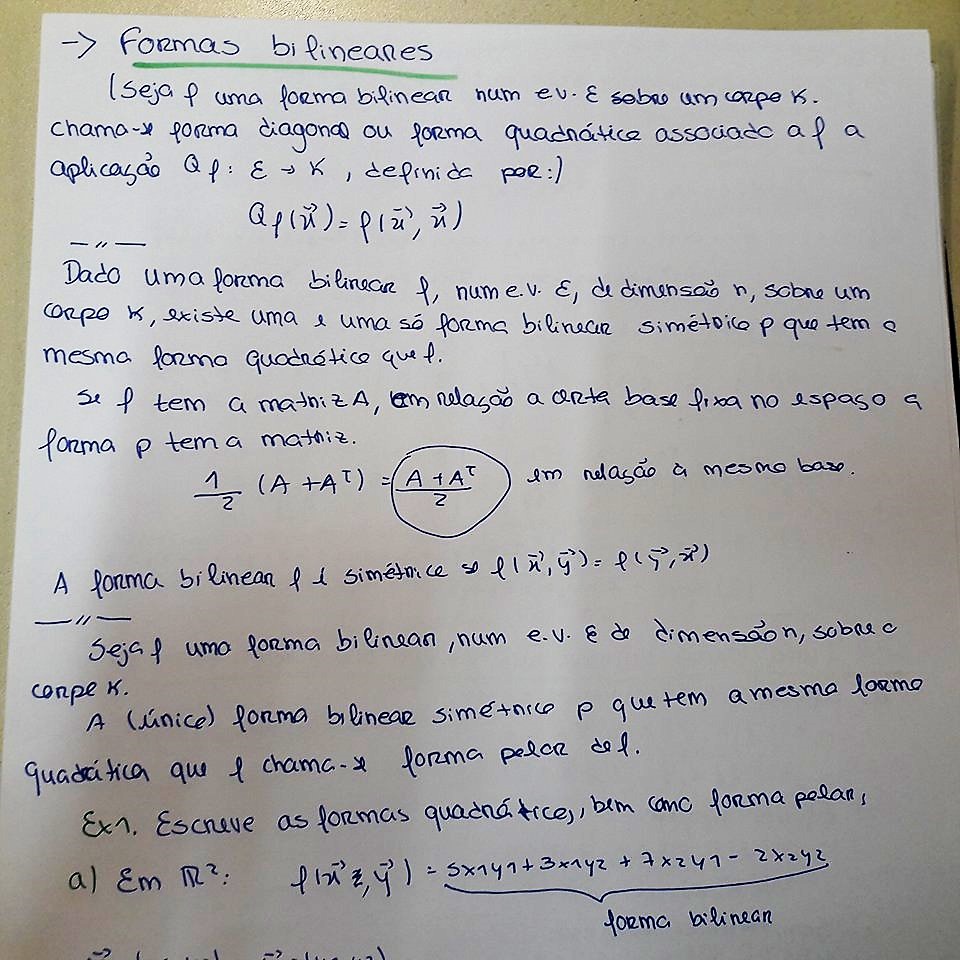 -> Formas bilineares
(Seja f uma forma bilinear num e.v. E sobre um corpo K.
chama-se forma diagonal ou forma quadrática associada a f a
aplicação Qf: E → K, definida por:)
Qf(x⃗) = f(x⃗, x⃗)
— // —
Dado uma forma bilinear f, num e.v. E, de dimensão n, sobre um
corpo K, existe uma e uma só forma bilinear simétrica p que tem a
mesma forma quadrática que f.
Se f tem a matriz A, em relação a certa base fixa no espaço a
forma p tem a matriz.
1/2 (A + Aᵀ) = (A + Aᵀ)/2 em relação à mesma base.
A forma bilinear f é simétrica se f(x⃗, y⃗) = f(y⃗, x⃗)
— // —
Seja f uma forma bilinear, num e.v. E de dimensão n, sobre o
corpo K.
A (única) forma bilinear simétrica p que tem a mesma forma
quadrática que f chama-se forma polar de f.
Ex1. Escreve as formas quadráticas, bem como forma polar,
a) Em ℝ²: f(x⃗, y⃗) = 5x1y1 + 3x1y2 + 7x2y1 - 2x2y2
forma bilinear